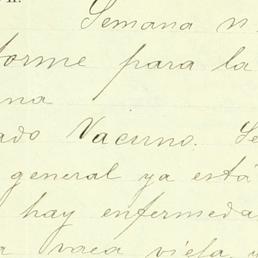 Semana n
forme para la
na
ado Vacuno. Se
general ya está
hay enfermeda
a vaca vieja y